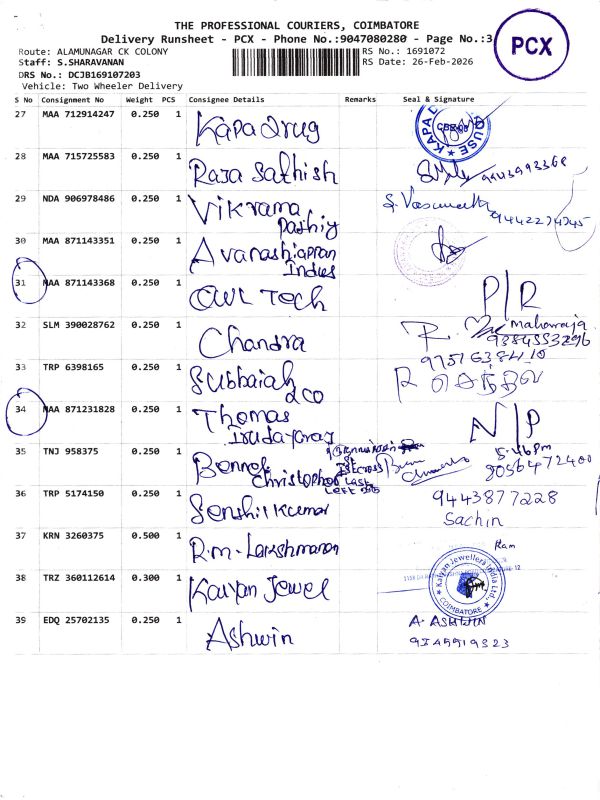 THE PROFESSIONAL COURIERS, COIMBATORE
Delivery Runsheet - PCX - Phone No.:9047080280 - Page No.:3
PCX
Route: ALAMUNAGAR CK COLONY
RS No.: 1691072
Staff: S.SHARAVANAN
RS Date: 26-Feb-2026
DRS No.: DCJB169107203
Vehicle: Two Wheeler Delivery
S No Consignment No Weight PCS Consignee Details Remarks Seal & Signature
27 MAA 712914247 0.250 1 Kapa Drug
28 MAA 715725583 0.250 1 Raja Sathish
29 NDA 906978486 0.250 1 Vikrama
30 MAA 871143351 0.250 1
31 MAA 871143368 0.250 1 Tech P/R
32 SLM 390028762 0.250 1 Chandra R. Maharaja
9384553296
9751638410
33 TRP 6398165 0.250 1 Subbaiah
& co
34 MAA 871231828 0.250 1 Thomas N/P
Irudayaraj
35 TNJ 958375 0.250 1 5.46pm
Christopher 8056472400
36 TRP 5174150 0.250 1 Senthil Kumar 9443877228
Sachin
37 KRN 3260375 0.500 1 R.m. Lakshmanan Ram
38 TRZ 360112614 0.300 1 Kalyan Jewel Kalyan Jewellers India Ltd.,
COIMBATORE
39 EDQ 25702135 0.250 1 Ashwin A. ASHWIN